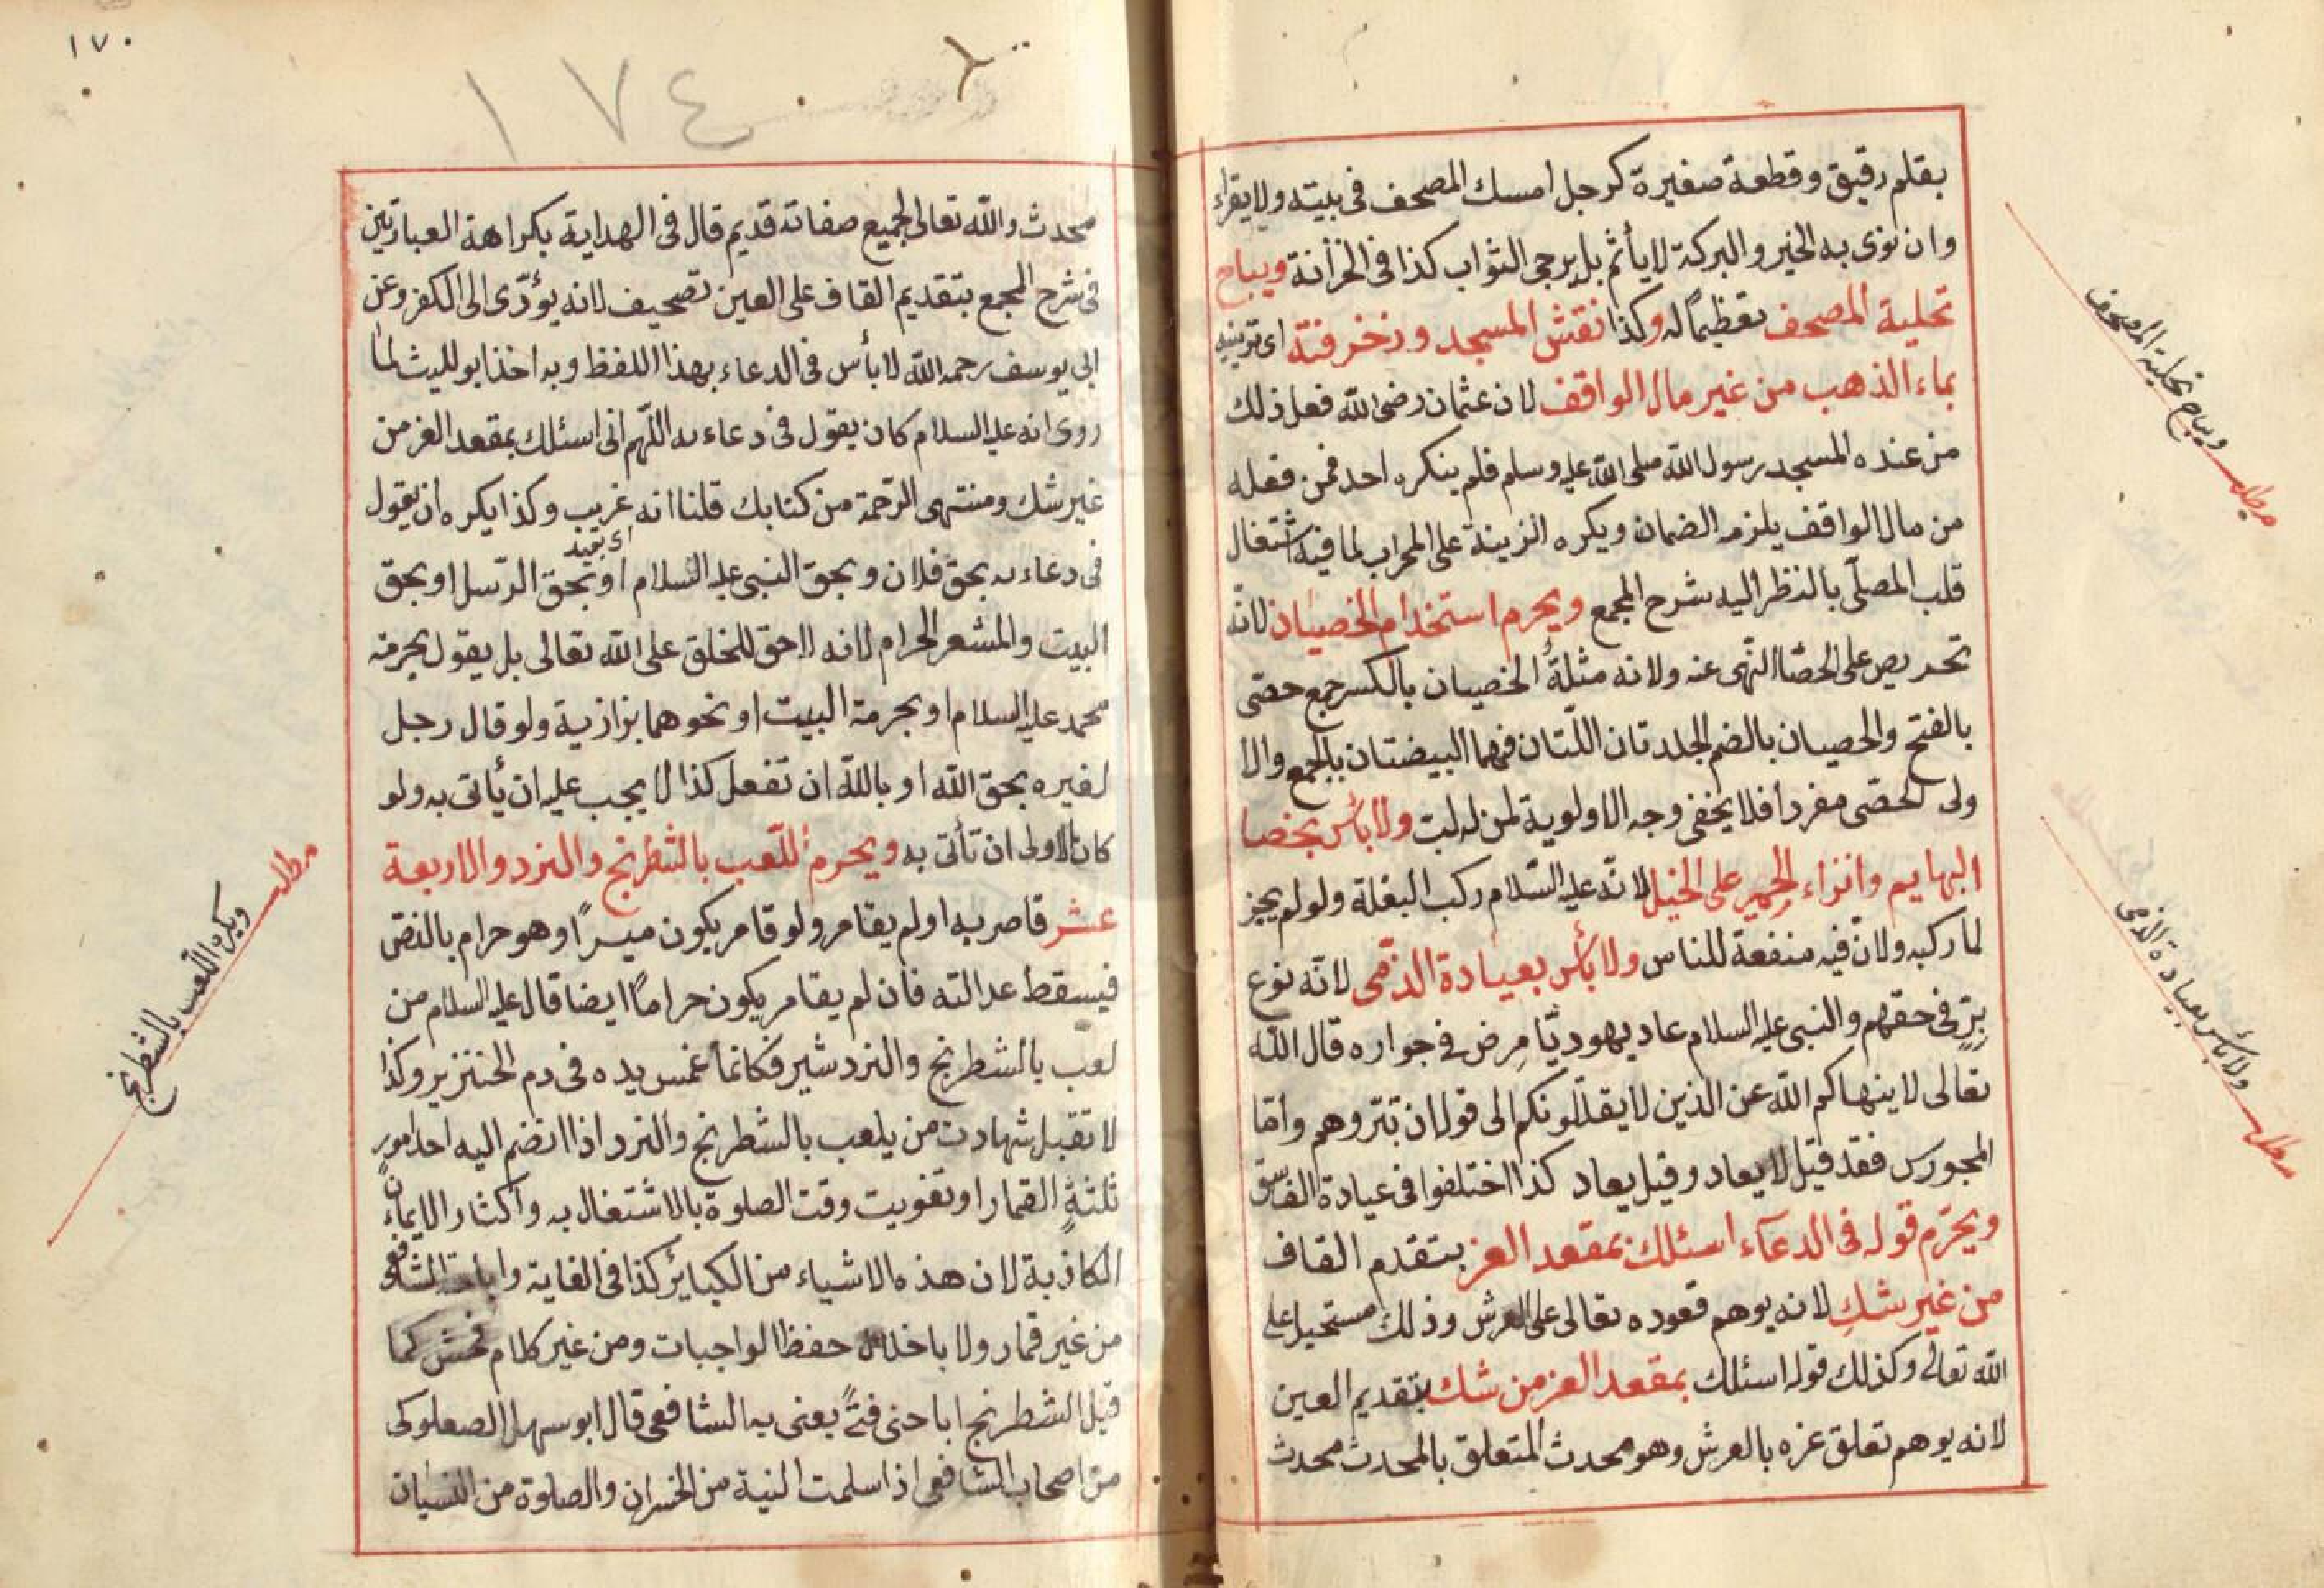 بقلم رقيق وقطعة صغيرة كرجل امسك المصحف فى بيته ولا يقراء
وان نوى به الخير والبركة لا يأثم بل يرجى الثواب كذا فى الخزانة ويباح
تحلية المصحف تعظيماً له وكذا نقش المسجد وزخرفته اى تزيينه
بماء الذهب من غير مال الواقف لان عثمان رضى الله فعل ذلك
من عنده المسجد رسول الله صلى الله عليه وسلم فلم ينكره احد فمن فعله
من مال الواقف يلزمه الضمان ويكره الزينة على المحراب لما فيه اشتغال
قلب المصلّى بالنظر اليه شرح المجمع ويحرم استخدام الخصيان لانّه
تحريص على الخصا النهى عنه ولانه مثلة الخصيان بالكسر جمع خصى
بالفتح والخصيان بالضم الجلدتان اللّتان فيهما البيضتان بالجمع والا
ولى لخصّى مفردا فلا يخفى وجه الاولوية لمن له لبت ولا بأس بخصا
البهايم وانزاء الحمير على الخيل لانّه عليه السّلام ركب البغلة ولو لم يجز
لما ركبه ولانّ فيه منفعة للناس ولا بأس بعيادة الذمّى لانّه نوع
برٍّ فى حقهم والنبى عليه السلام عاد يهوديّا مرض فى جواره قال اللّه
تعالى لا ينهاكم اللّه عن الذين لا يقاتلونكم الى قوله ان تبرّوهم وامّا
المجوس فقد قيل لا يعاد وقيل يعاد كذا اختلفوا فى عيادة الفاسق
ويحرّم قوله فى الدعآء اسئلك بمقعد العز بتقدم القاف
من غير شك لانه يوهم قعوده تعالى على العرش وذلك مستحيل على
اللّه تعالى وكذلك قوله اسئلك بمقعد العز من شك بتقديم العين
لانه يوهم تعلق عزه بالعرش وهو محدث المتعلق بالمحدث محدث
ويباح تحلية المصحف
مطلب
ولا بأس بعيادة الذمى
مطلب
١٧٠
١٧٤
محدث واللّه تعالى لجميع صفاته قديم قال فى الهداية بكراهة العبارتين
فى شرح المجمع بتقديم القاف على العين تصحيف لانه يؤدّى الى الكفر وعن
ابى يوسف رحمه اللّه لا بأس فى الدعاء بهذا اللفظ وبه اخذ ابو لليث لما
روى انه عليه السلام كان يقول فى دعاءه اللّهم انى اسئلك بمقعد العز من
غير شك ومنتهى الرّحمة من كتابك قلنا انه غريب وكذا يكره ان يقول
فى دعاءه بحق فلان وبحق النبى عليه السّلام او بحق الرّسل او بحق
البيت والمشعر الحرام لانه لا حق للخلق على اللّه تعالى بل يقول بحرمة
محمد عليه السلام او بحرمة البيت او نحوهما بزازية ولو قال رجل
لغيره بحق اللّه او باللّه ان تفعل كذا لا يجب عليه ان يأتى به ولو
كان الاولى ان تأتى به ويحرم اللّعب بالشطرنج والنرد والاربعة
عشر قامر به او لم يقامر ولو قامر يكون ميسراً وهو حرام بالنصّ
فيسقط عدالته فان لم يقامر يكون حراماً ايضا قال عليه السلام من
لعب بالشطرنج والنرد شير فكانما غمس يده فى دم الخنزير وكذا
لا تقبل شهادت من يلعب بالشطرنج والنرد اذا انضم اليه احد امور
ثلثة القمار او تفويت وقت الصلوة بالاشتغال به واكثار الايمان
الكاذبة لان هذه الاشياء من الكبائر كذا فى الغاية واباحة الشافعى
من غير قمار ولا باخلال حفظ الواجبات ومن غير كلام فحش كما
قيل الشطرنج اباحنى فتًى يعنى به الشافعى قال ابو سهل الصعلوكى
من اصحاب الشافعى اذا سلمت النية من الخسران والصلوة من النسيان
مطلب
ويكره اللّعب بالشطرنج